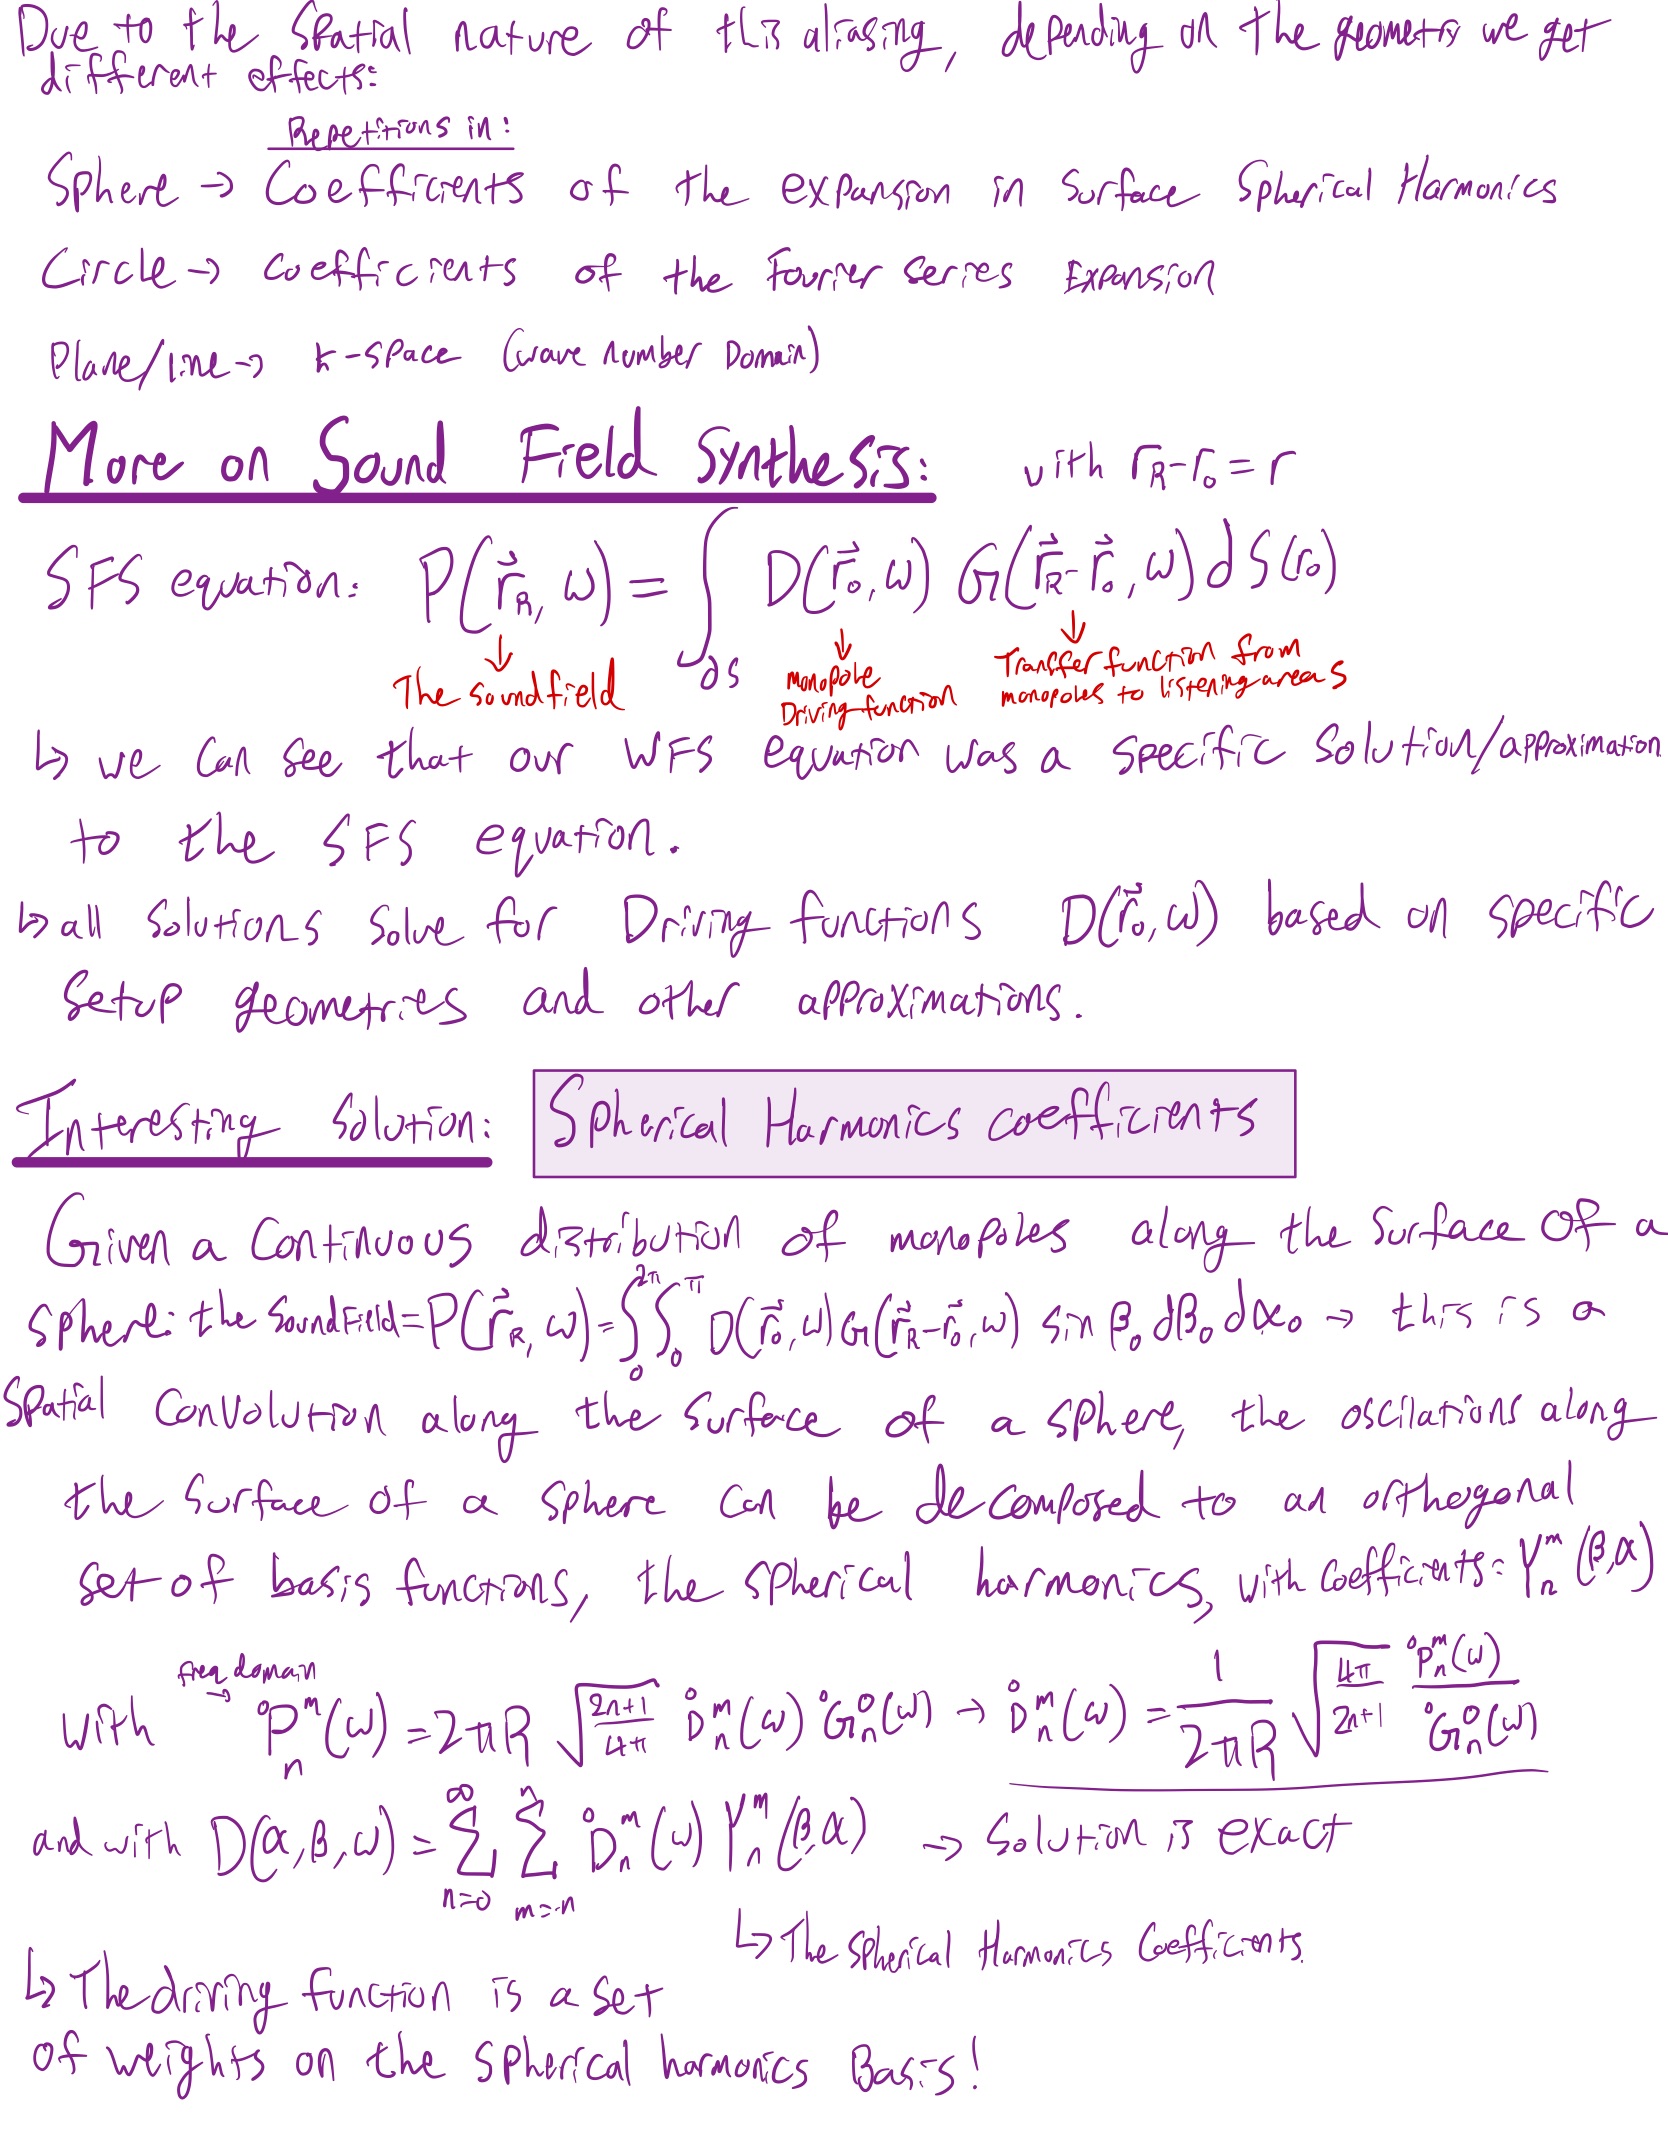 Due to the spatial nature of this aliasing, depending on the geometry we get
different effects:
Repetitions in:
Sphere → Coefficients of the expansion in Surface Spherical Harmonics
Circle → coefficients of the Fourier series Expansion
Plane/line → k-space (wave number Domain)
More on Sound Field Synthesis: with r_R - r_o = r
SFS equation: P(r⃗_R, ω) = ∫_∂S D(r⃗_o, ω) G(r⃗_R - r⃗_o, ω) dS(r_o)
↓ The soundfield
↓ monopole Driving function
↓ Transfer function from monopoles to listening areas
↳ we can see that our WFS equation was a specific solution/approximation
to the SFS equation.
↳ all solutions solve for Driving functions D(r⃗_o, ω) based on specific
setup geometries and other approximations.
Interesting solution: Spherical Harmonics coefficients
Given a continuous distribution of monopoles along the surface of a
sphere: the soundfield = P(r⃗_R, ω) = ∫_0^2π ∫_0^π D(r⃗_o, ω) G(r⃗_R - r⃗_o, ω) sin β_o dβ_o dα_o → this is a
Spatial Convolution along the surface of a sphere, the oscilations along
the surface of a sphere can be decomposed to an orthogonal
set of basis functions, the spherical harmonics, with coefficients: Y_n^m (β,α)
freq domain →
with P̊_n^m(ω) = 2πR √((2n+1)/4π) D̊_n^m(ω) G̊_n^0(ω) → D̊_n^m(ω) = 1/(2πR) √(4π/(2n+1) P̊_n^m(ω)/G̊_n^0(ω))
and with D(α,β,ω) = Σ_{n=0}^∞ Σ_{m=-n}^n D̊_n^m(ω) Y_n^m(β,α) → Solution is exact
↳ The Spherical Harmonics Coefficients.
↳ The driving function is a set
of weights on the spherical harmonics Basis!